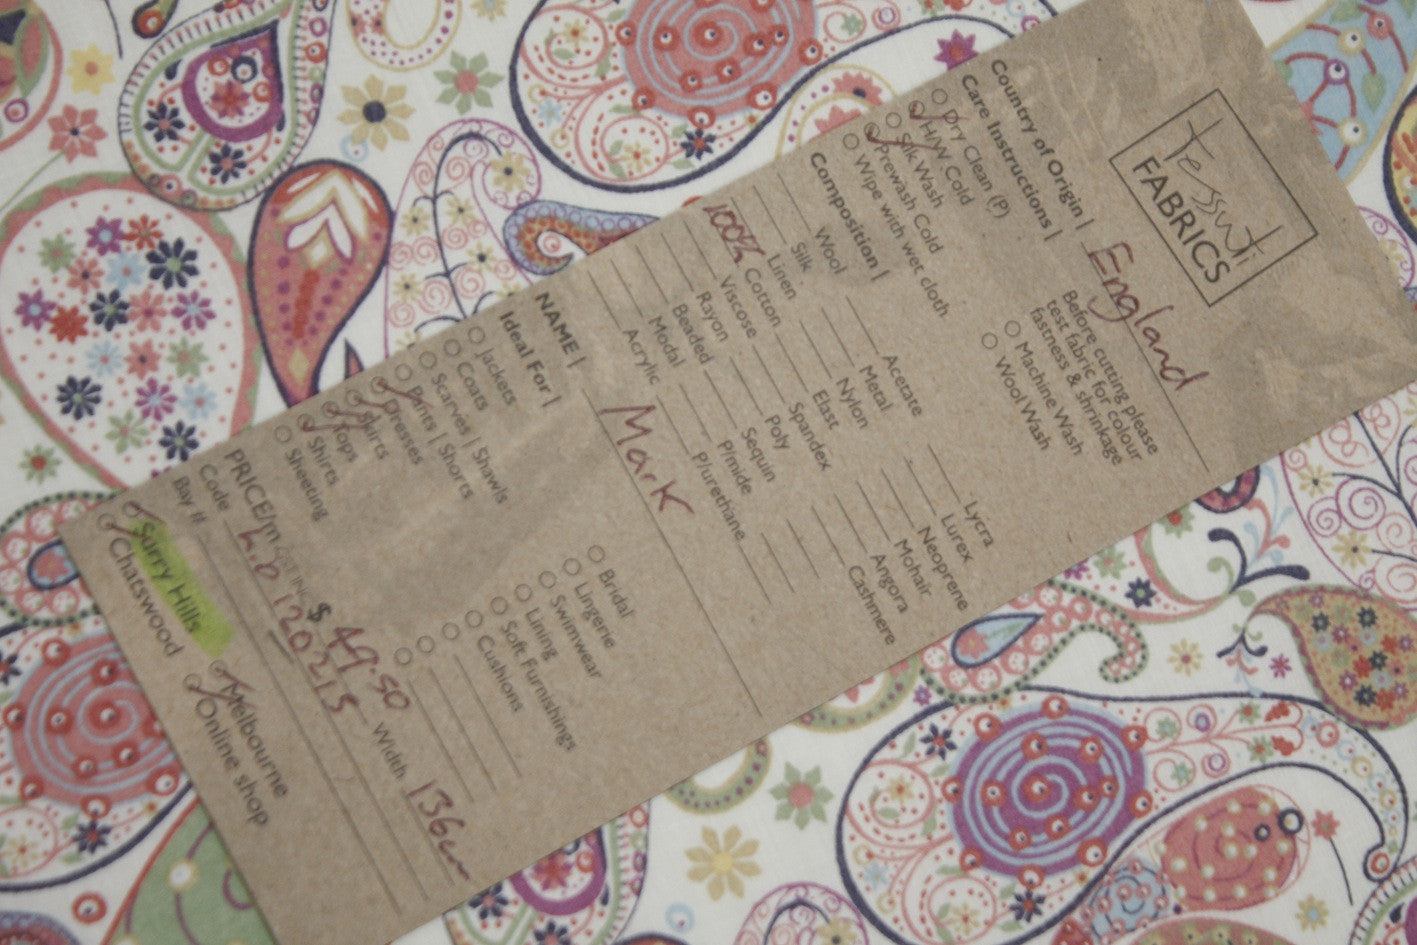 Tessuti
FABRICS
Country of Origin | England
Care Instructions |
Dry Clean (P)
H/W Cold
Silk Wash
Prewash Cold
Wipe with wet cloth
Before cutting please
test fabric for colour
fastness & shrinkage
Machine Wash
Wool Wash
Composition |
Wool
Silk
Linen
100% Cotton
Viscose
Rayon
Beaded
Modal
Acrylic
Acetate
Metal
Nylon
Elast
Spandex
Poly
Sequin
P/mide
P/urethane
Lycra
Lurex
Neoprene
Mohair
Angora
Cashmere
NAME | Mark
Ideal For |
Jackets
Coats
Scarves | Shawls
Pants | Shorts
Dresses
Skirts
Tops
Shirts
Sheeting
Bridal
Lingerie
Swimwear
Lining
Soft Furnishings
Cushions
PRICE/m GST INC $ 49.50 Width 136cm
Code
Bay #
Surry Hills
Chatswood
Melbourne
Online shop